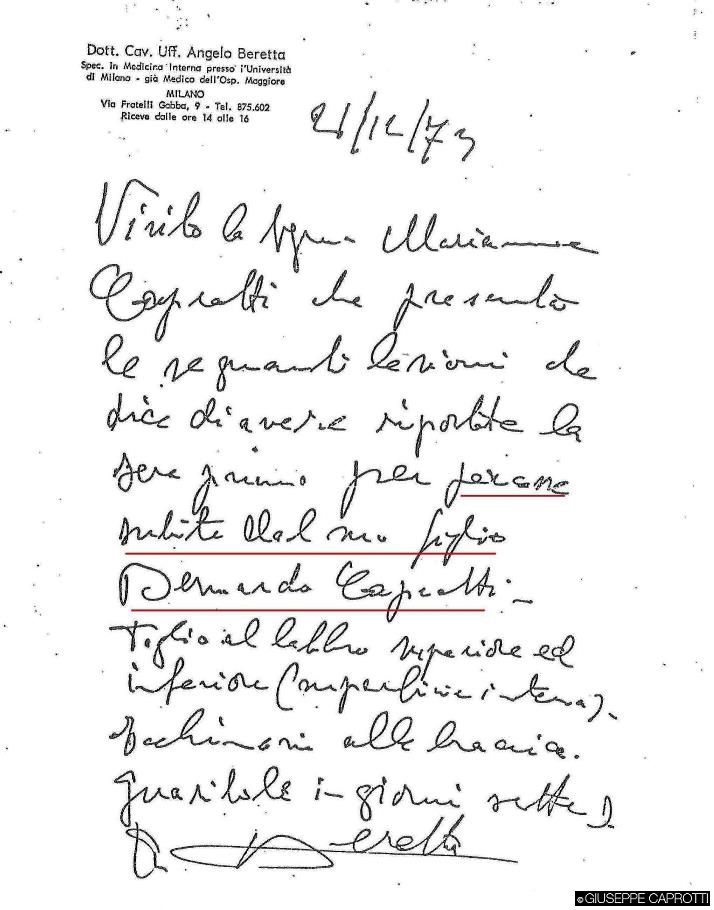 Dott. Cav. Uff. Angelo Beretta
Spec. in Medicina Interna presso l'Università
di Milano - già Medico dell'Osp. Maggiore
MILANO
Via Fratelli Gabba, 9 - Tel. 875.602
Riceve dalle ore 14 alle 16
21/12/73
Visito la Marianne
Caprotti che presenta
le seguenti lesioni che
dice di avere riportate la
sera prima per
subite dal suo figlio
Bernardo Caprotti -
Taglio al labbro superiore ed
inferiore (superficie interna).
Ecchimosi alle braccia.
Guaribile in giorni sette
Dr Beretta
©GIUSEPPE CAPROTTI